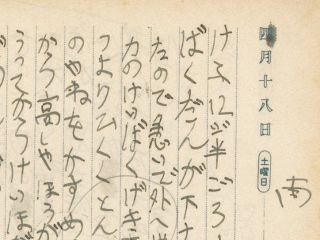 四月十八日
土曜日
けふ12ジ半ごろ
ばくだんが下
たので急いで外へ
カのけいばくげき
つよりひくくとん
のやねをかすめ
から高しやほうが
うってからけいほ